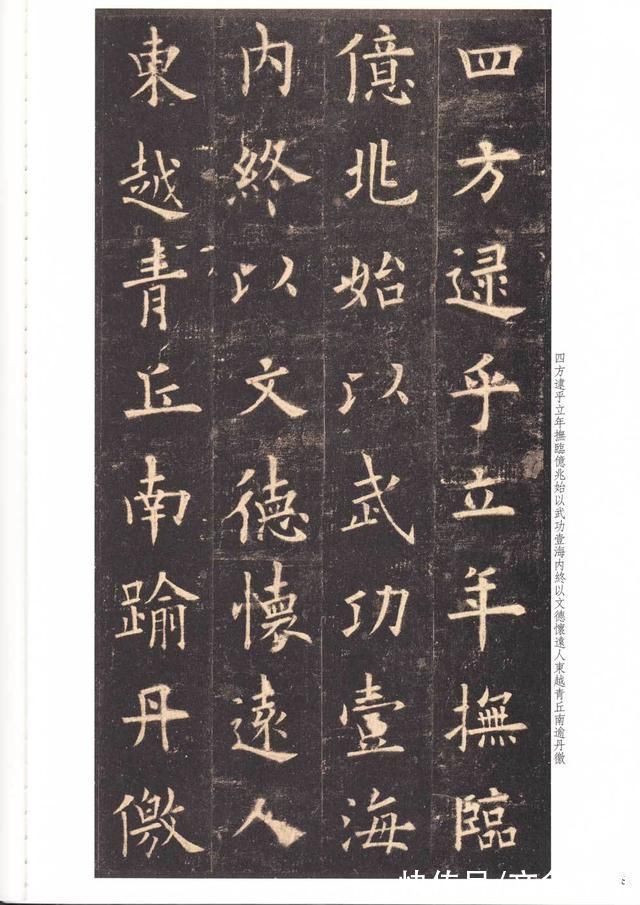 四方逯乎立年撫臨
億兆始以武功壹海
内終以文德懷遠人
東越青丘南踰丹儌
四方逮乎立年撫臨億兆始以武功壹海内終以文德懷遠人東越青丘南逾丹徼